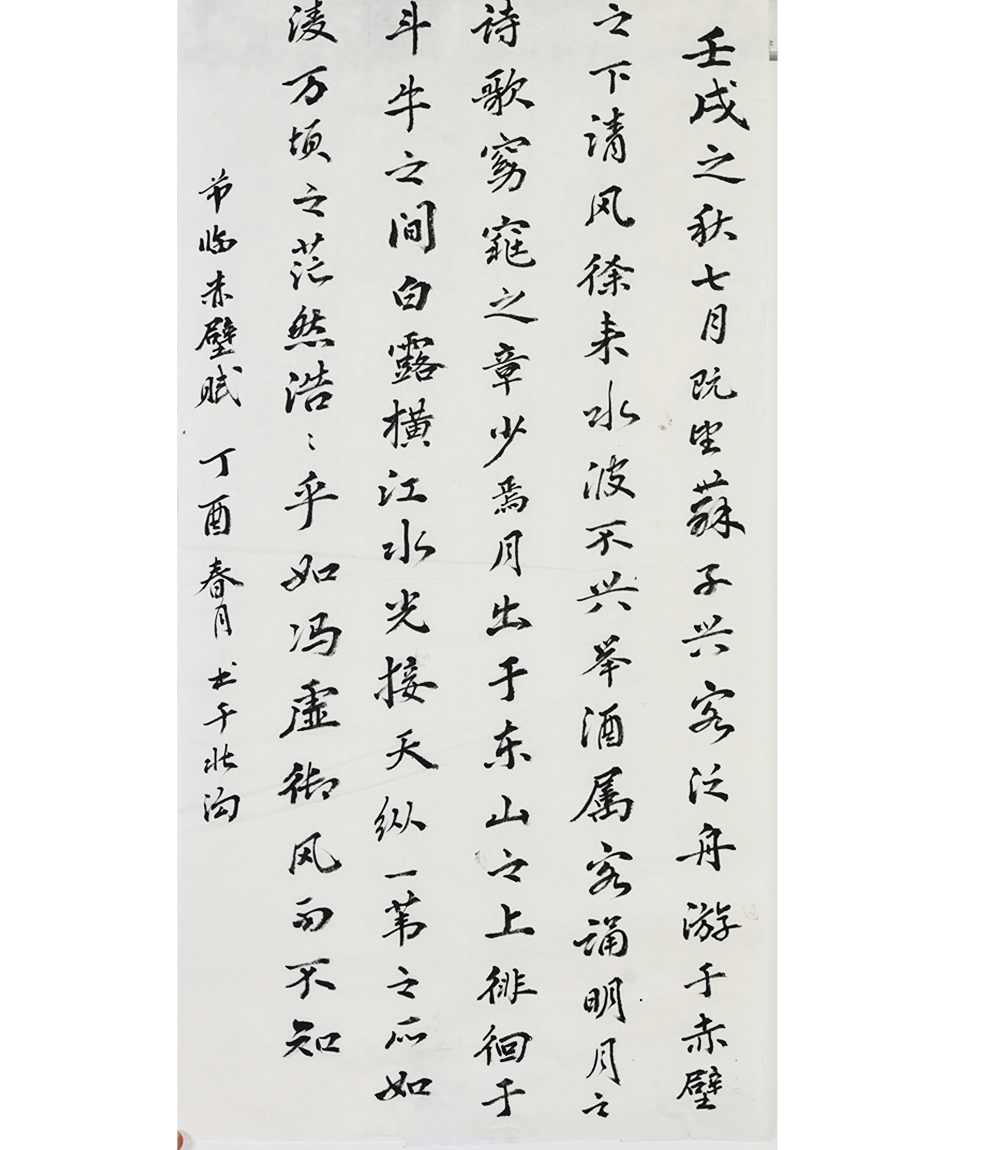 壬戌之秋七月既望蘇子兴客泛舟游于赤壁
之下清风徐来水波不兴举酒属客诵明月之
诗歌窈窕之章少焉月出于东山之上徘徊于
斗牛之间白露横江水光接天纵一苇之所如
凌万顷之茫然浩〻乎如冯虚御风而不知
节临赤壁赋 丁酉春月 书于北沟